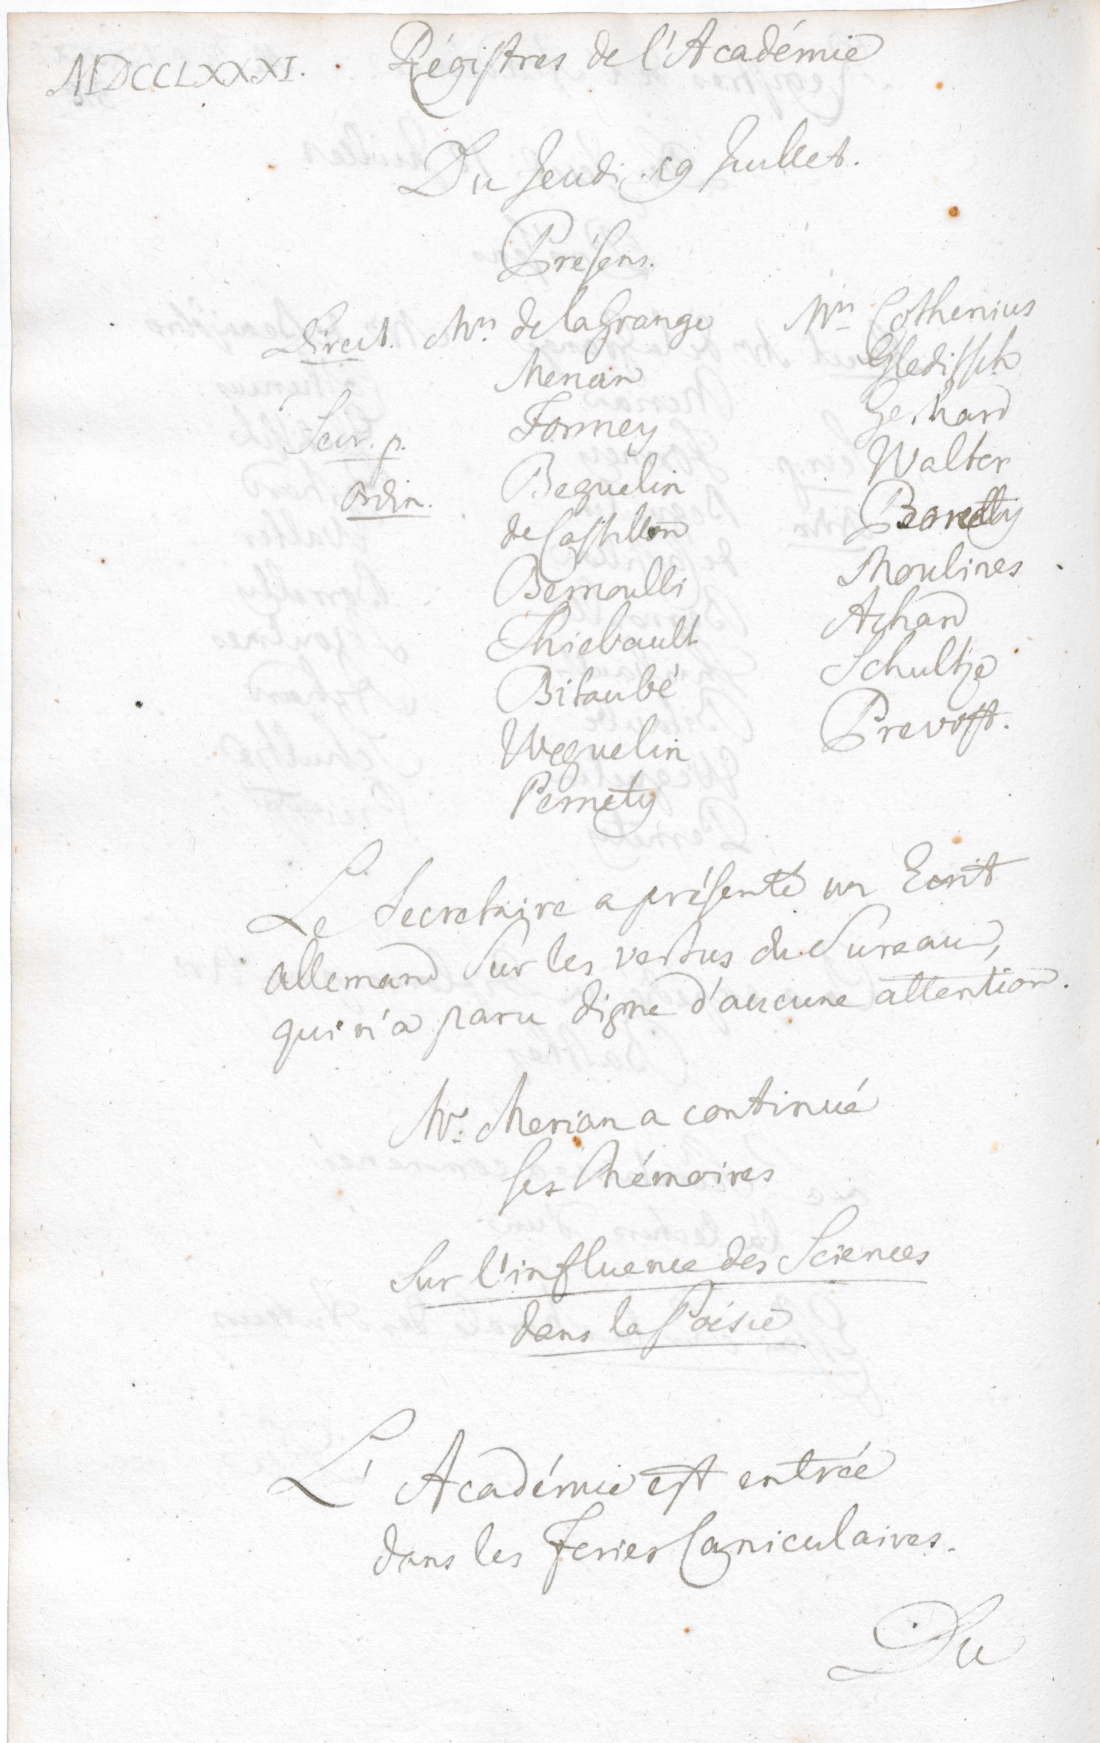 MDCCLXXXI.
Régistres de l'Académie
Du Jeudi 19 Juillet.
Présens.
Direct. Mrs. de la Grange
Merian
Secr. p. Formey
Ordin. Beguelin
de Castillon
Bernoulli
Thiebault
Bitaubé
Weguelin
Pernety
Mrs Cothenius
Gleditsch
Gerhard
Walter
Borrelly
Moulines
Achard
Schultze
Prevost.
Le Secretaire a présenté un Ecrit
allemand sur les vertus du Sureau,
qui n'a paru digne d'aucune attention.
Mr. Merian a continué
ses Mémoires
sur l'influence des Sciences
dans la Poésie
L'Académie est entrée
dans les Feries Caniculaires.
Du